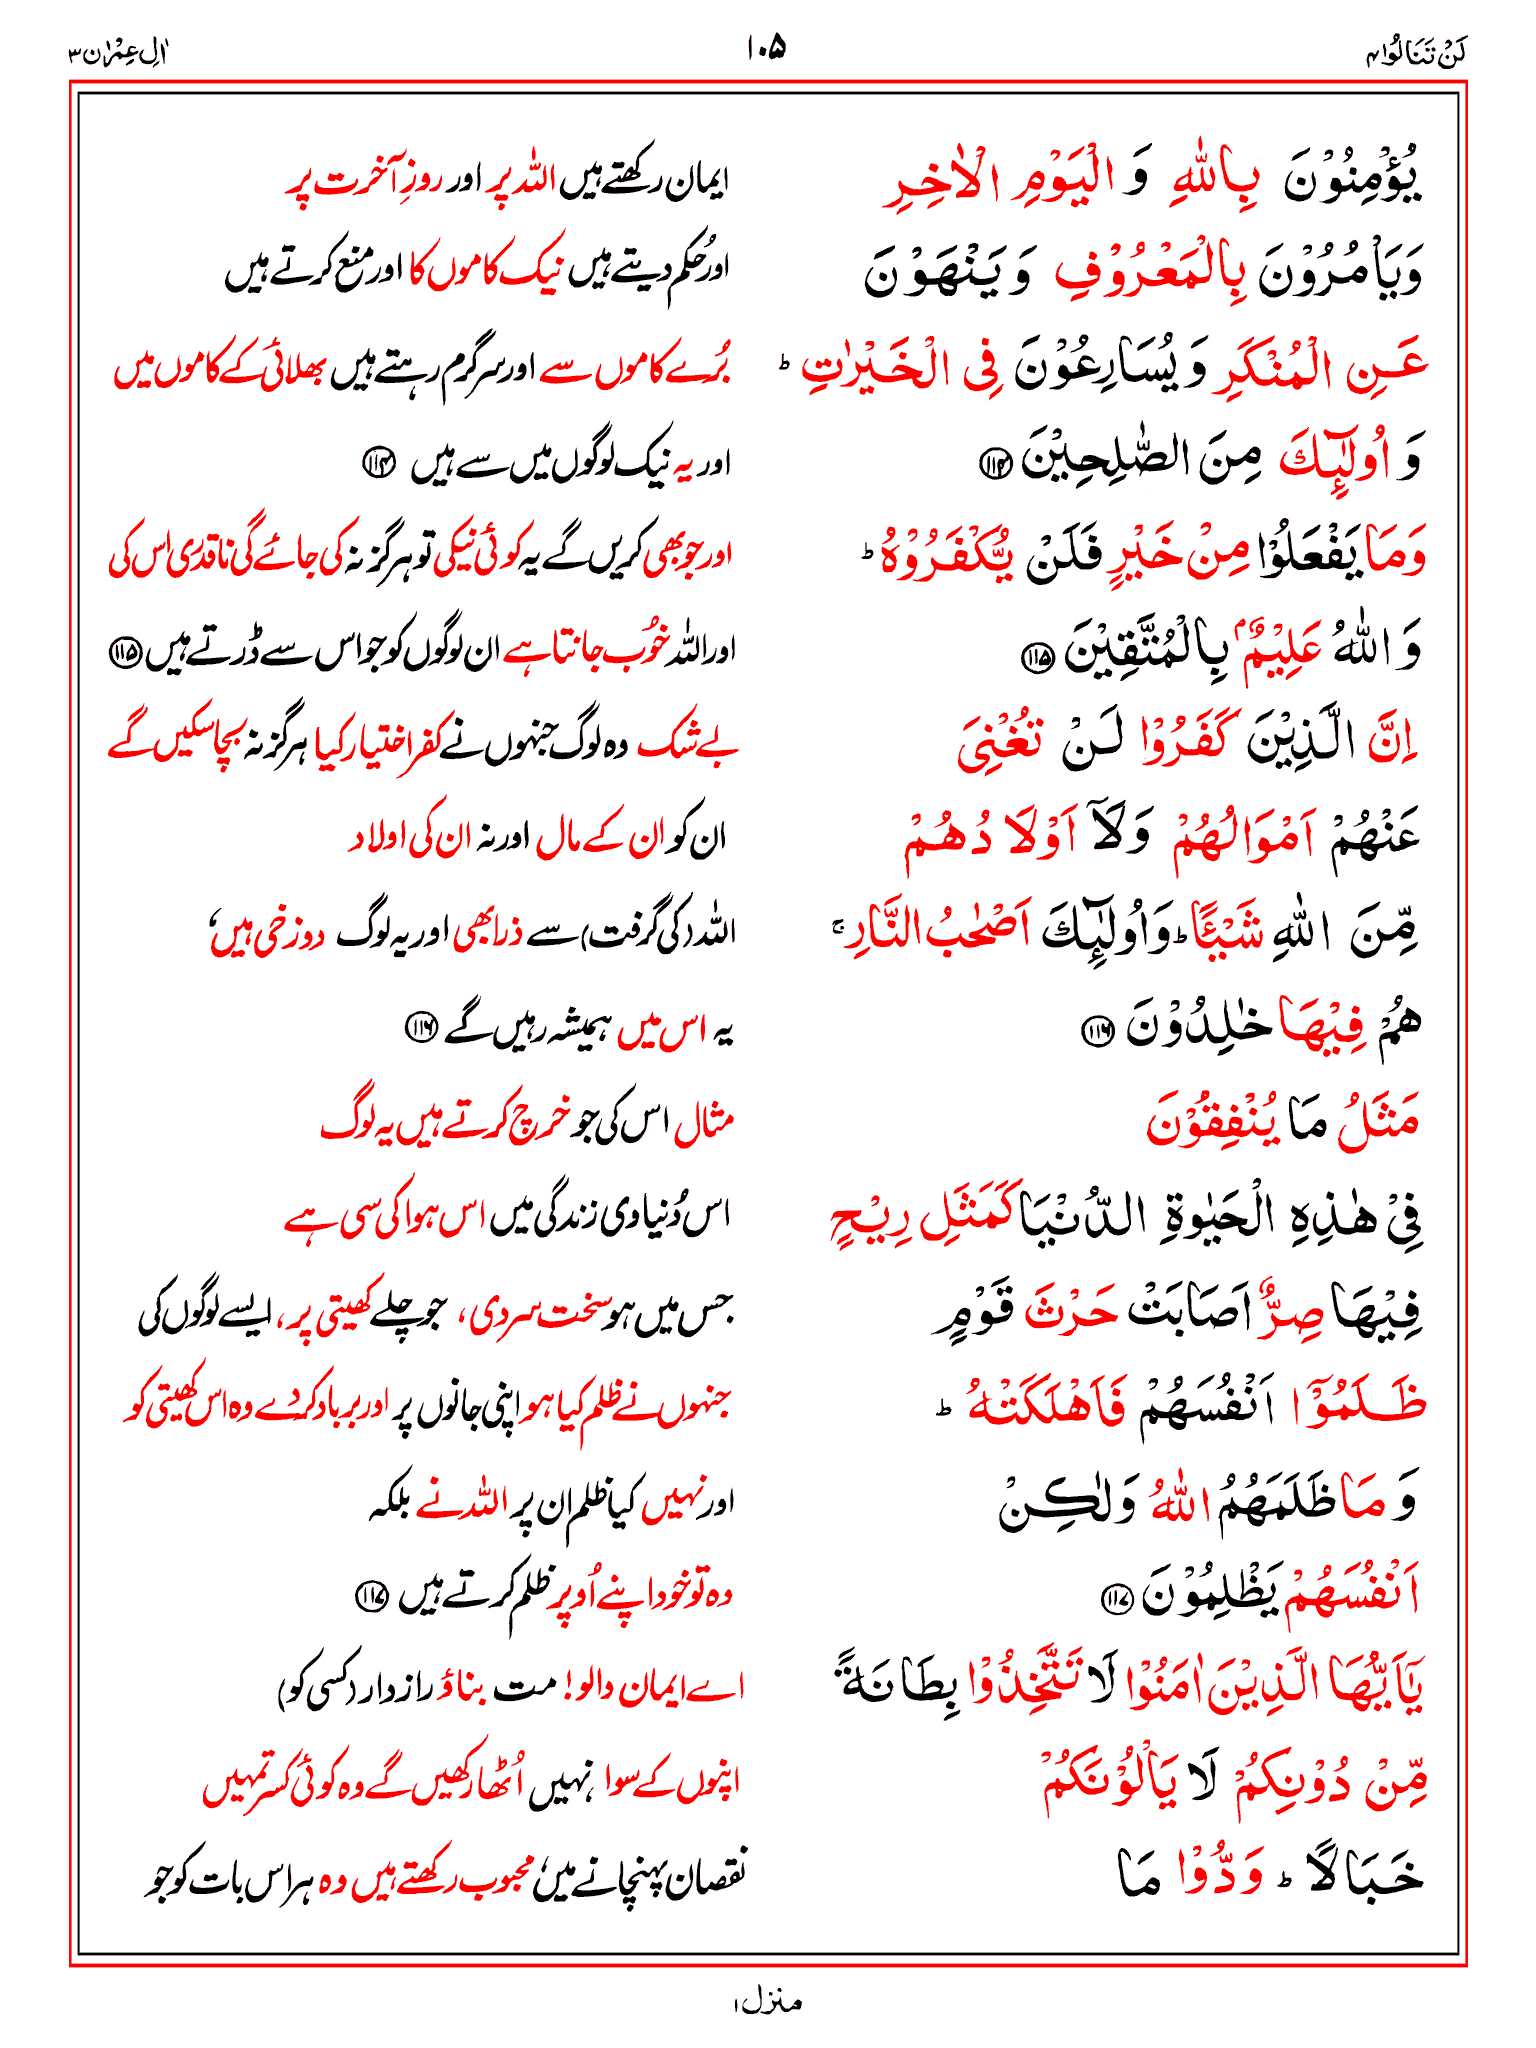 لَنْ تَنَالُوا ۴ ۱۰۵ اٰلِ عِمْرٰن ۳
يُؤْمِنُوْنَ بِاللّٰهِ وَ الْيَوْمِ الْاٰخِرِ ایمان رکھتے ہیں اللہ پر اور روزِ آخرت پر
وَيَاْمُرُوْنَ بِالْمَعْرُوْفِ وَيَنْهَوْنَ اور حُکم دیتے ہیں نیک کاموں کا اور منع کرتے ہیں
عَنِ الْمُنْكَرِ وَيُسَارِعُوْنَ فِى الْخَيْرٰتِ ؕ بُرے کاموں سے اور سرگرم رہتے ہیں بھلائی کے کاموں میں
وَ اُولٰٓئِكَ مِنَ الصّٰلِحِيْنَ ﴿۱۱۴﴾ اور یہ نیک لوگوں میں سے ہیں ﴿۱۱۴﴾
وَمَا يَفْعَلُوْا مِنْ خَيْرٍ فَلَنْ يُّكْفَرُوْهُ ؕ اور جو بھی کریں گے یہ کوئی نیکی تو ہرگز نہ کی جائے گی ناقدری اس کی
وَ اللّٰهُ عَلِيْمٌۢ بِالْمُتَّقِيْنَ ﴿۱۱۵﴾ اور اللہ خُوب جانتا ہے ان لوگوں کو جو اس سے ڈرتے ہیں ﴿۱۱۵﴾
اِنَّ الَّذِيْنَ كَفَرُوْا لَنْ تُغْنِىَ بے شک وہ لوگ جنہوں نے کفر اختیار کیا ہرگز نہ بچا سکیں گے
عَنْهُمْ اَمْوَالُهُمْ وَلَاۤ اَوْلَادُهُمْ ان کو ان کے مال اور نہ ان کی اولاد
مِّنَ اللّٰهِ شَيْـًٔا ؕ وَاُولٰٓئِكَ اَصْحٰبُ النَّارِ ۚ اللہ (کی گرفت) سے ذرا بھی اور یہ لوگ دوزخی ہیں،
هُمْ فِيْهَا خٰلِدُوْنَ ﴿۱۱۶﴾ یہ اس میں ہمیشہ رہیں گے ﴿۱۱۶﴾
مَثَلُ مَا يُنْفِقُوْنَ مثال اس کی جو خرچ کرتے ہیں یہ لوگ
فِىْ هٰذِهِ الْحَيٰوةِ الدُّنْيَا كَمَثَلِ رِيْحٍ اس دُنیاوی زندگی میں اس ہوا کی سی ہے
فِيْهَا صِرٌّ اَصَابَتْ حَرْثَ قَوْمٍ جس میں ہو سخت سردی، جو چلے کھیتی پر، ایسے لوگوں کی
ظَلَمُوْۤا اَنْفُسَهُمْ فَاَهْلَكَتْهُ ؕ جنہوں نے ظلم کیا ہو اپنی جانوں پر اور برباد کردے وہ اس کھیتی کو
وَ مَا ظَلَمَهُمُ اللّٰهُ وَلٰكِنْ اور نہیں کیا ظلم ان پر اللہ نے بلکہ
اَنْفُسَهُمْ يَظْلِمُوْنَ ﴿۱۱۷﴾ وہ تو خود اپنے اُوپر ظلم کرتے ہیں ﴿۱۱۷﴾
يٰۤاَيُّهَا الَّذِيْنَ اٰمَنُوْا لَا تَتَّخِذُوْا بِطَانَةً اے ایمان والو! مت بناؤ رازدار (کسی کو)
مِّنْ دُوْنِكُمْ لَا يَاْلُوْنَكُمْ اپنوں کے سوا نہیں اُٹھا رکھیں گے وہ کوئی کسر تمہیں
خَبَالًا ؕ وَدُّوْا مَا نقصان پہنچانے میں، محبوب رکھتے ہیں وہ ہر اس بات کو جو
منزل ۱